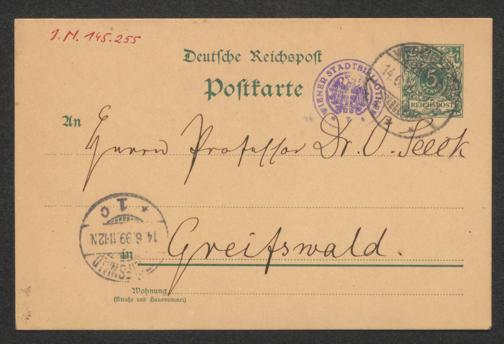 J. N. 145.255
Deutsche Reichspost
Postkarte
WIENER STADTBIBLIOTHEK
5
REICHSPOST
14.6
An
Herrn Professor Dr. O. Seeck
1 c
14 6.99.11-12N
in Greifswald.
Wohnung
(Straße und Hausnummer)